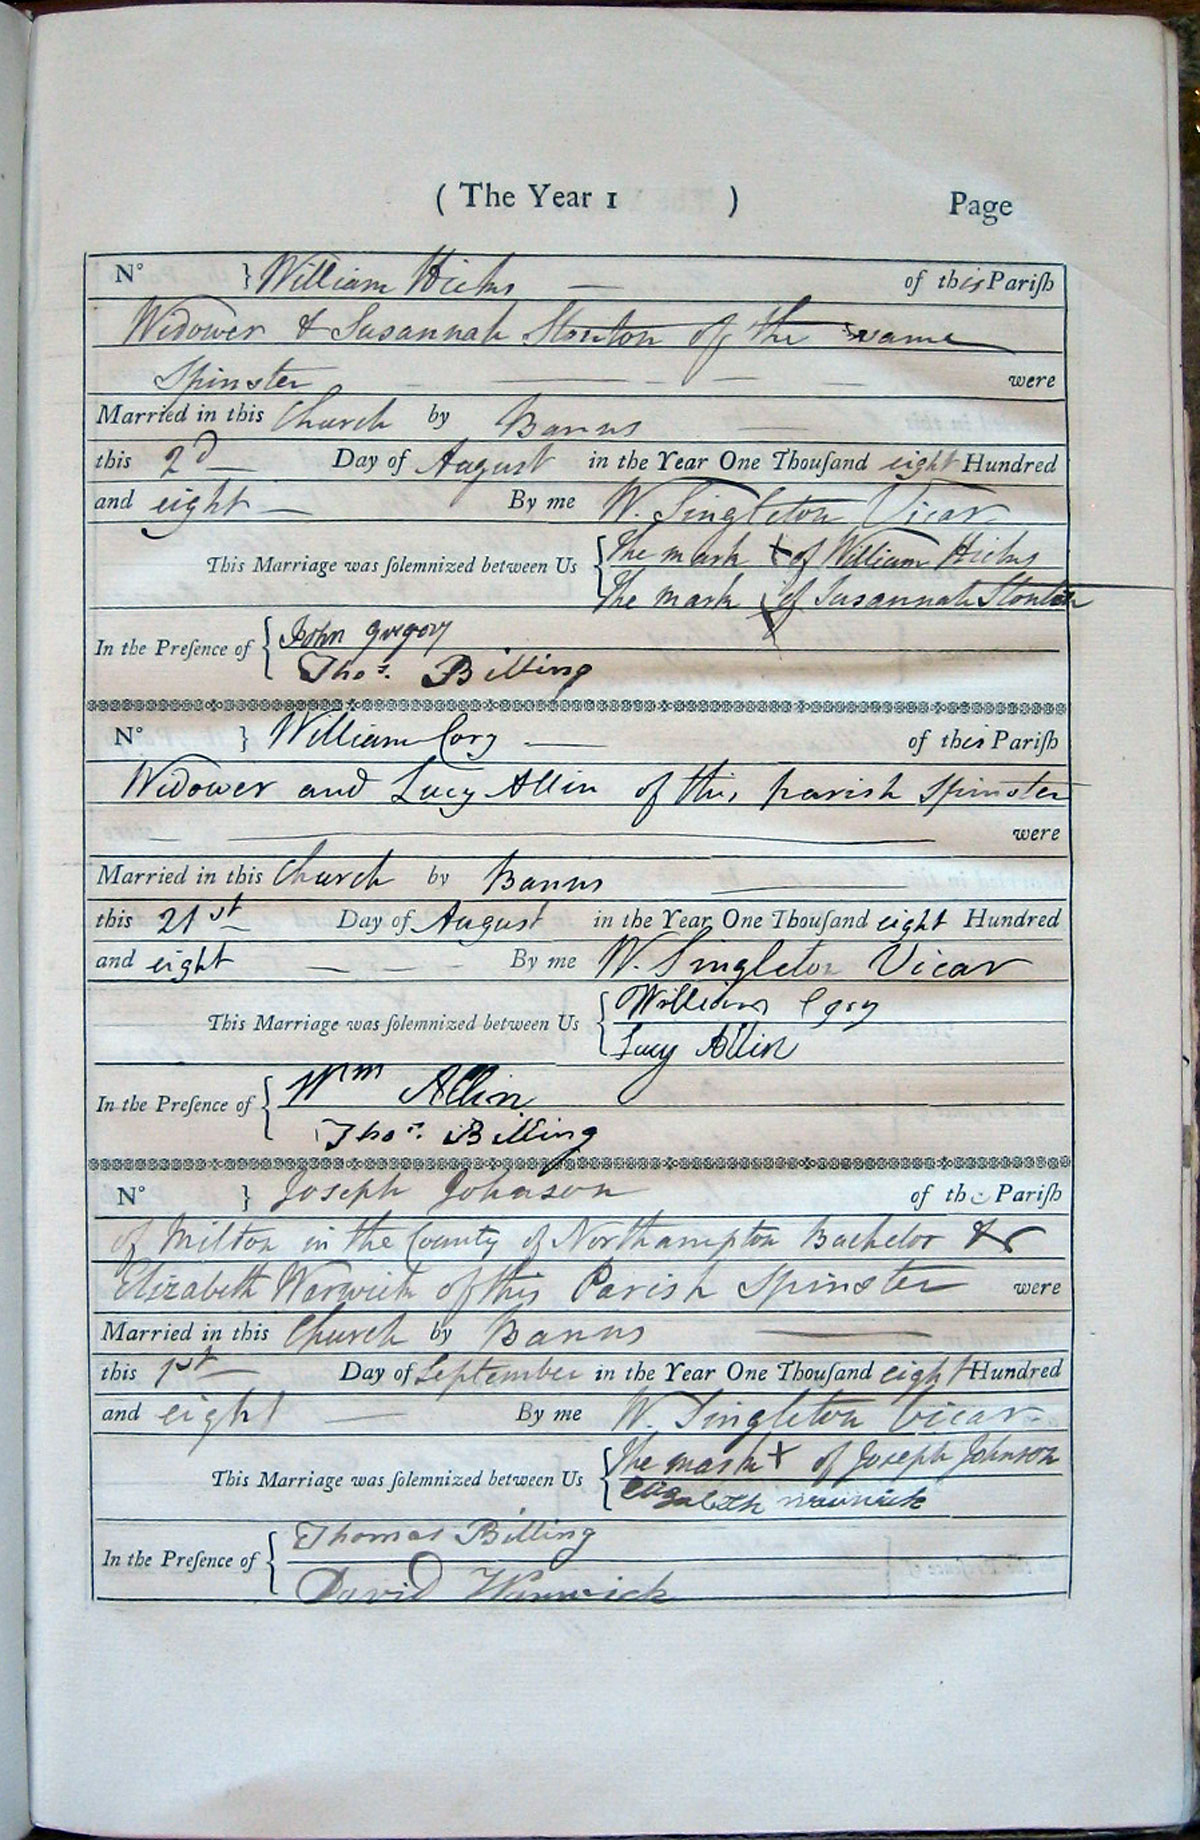 ( The Year 1 ) Page
N° } William Hicks — of this Pariſh
Widower & Susannah Stonton of the same
Spinster — were
Married in this Church by Banns —
this 2d — Day of August in the Year One Thouſand eight Hundred
and eight — By me W. Singleton Vicar
This Marriage was ſolemnized between Us { The mark + of William Hicks
The mark + of Susannah Stonton
In the Preſence of { John Gregory
Thos. Billing
N° } William Cory — of this Pariſh
Widower and Lucy Allin of this parish Spinster
— were
Married in this Church by Banns —
this 21st Day of August in the Year One Thouſand eight Hundred
and eight — By me W. Singleton Vicar
This Marriage was ſolemnized between Us { William Cory
Lucy Allin
In the Preſence of { Wm Allin
Thos. Billing
N° } Joseph Johnson of the Pariſh
of Milton in the County of Northampton Bachelor &
Elizabeth Warwick of this Parish Spinster were
Married in this Church by Banns —
this 1st — Day of September in the Year One Thouſand eight Hundred
and eight — By me W. Singleton Vicar
This Marriage was ſolemnized between Us { The mark + of Joseph Johnson
Elizabeth Warwick
In the Preſence of { Thomas Billing
David Warwick